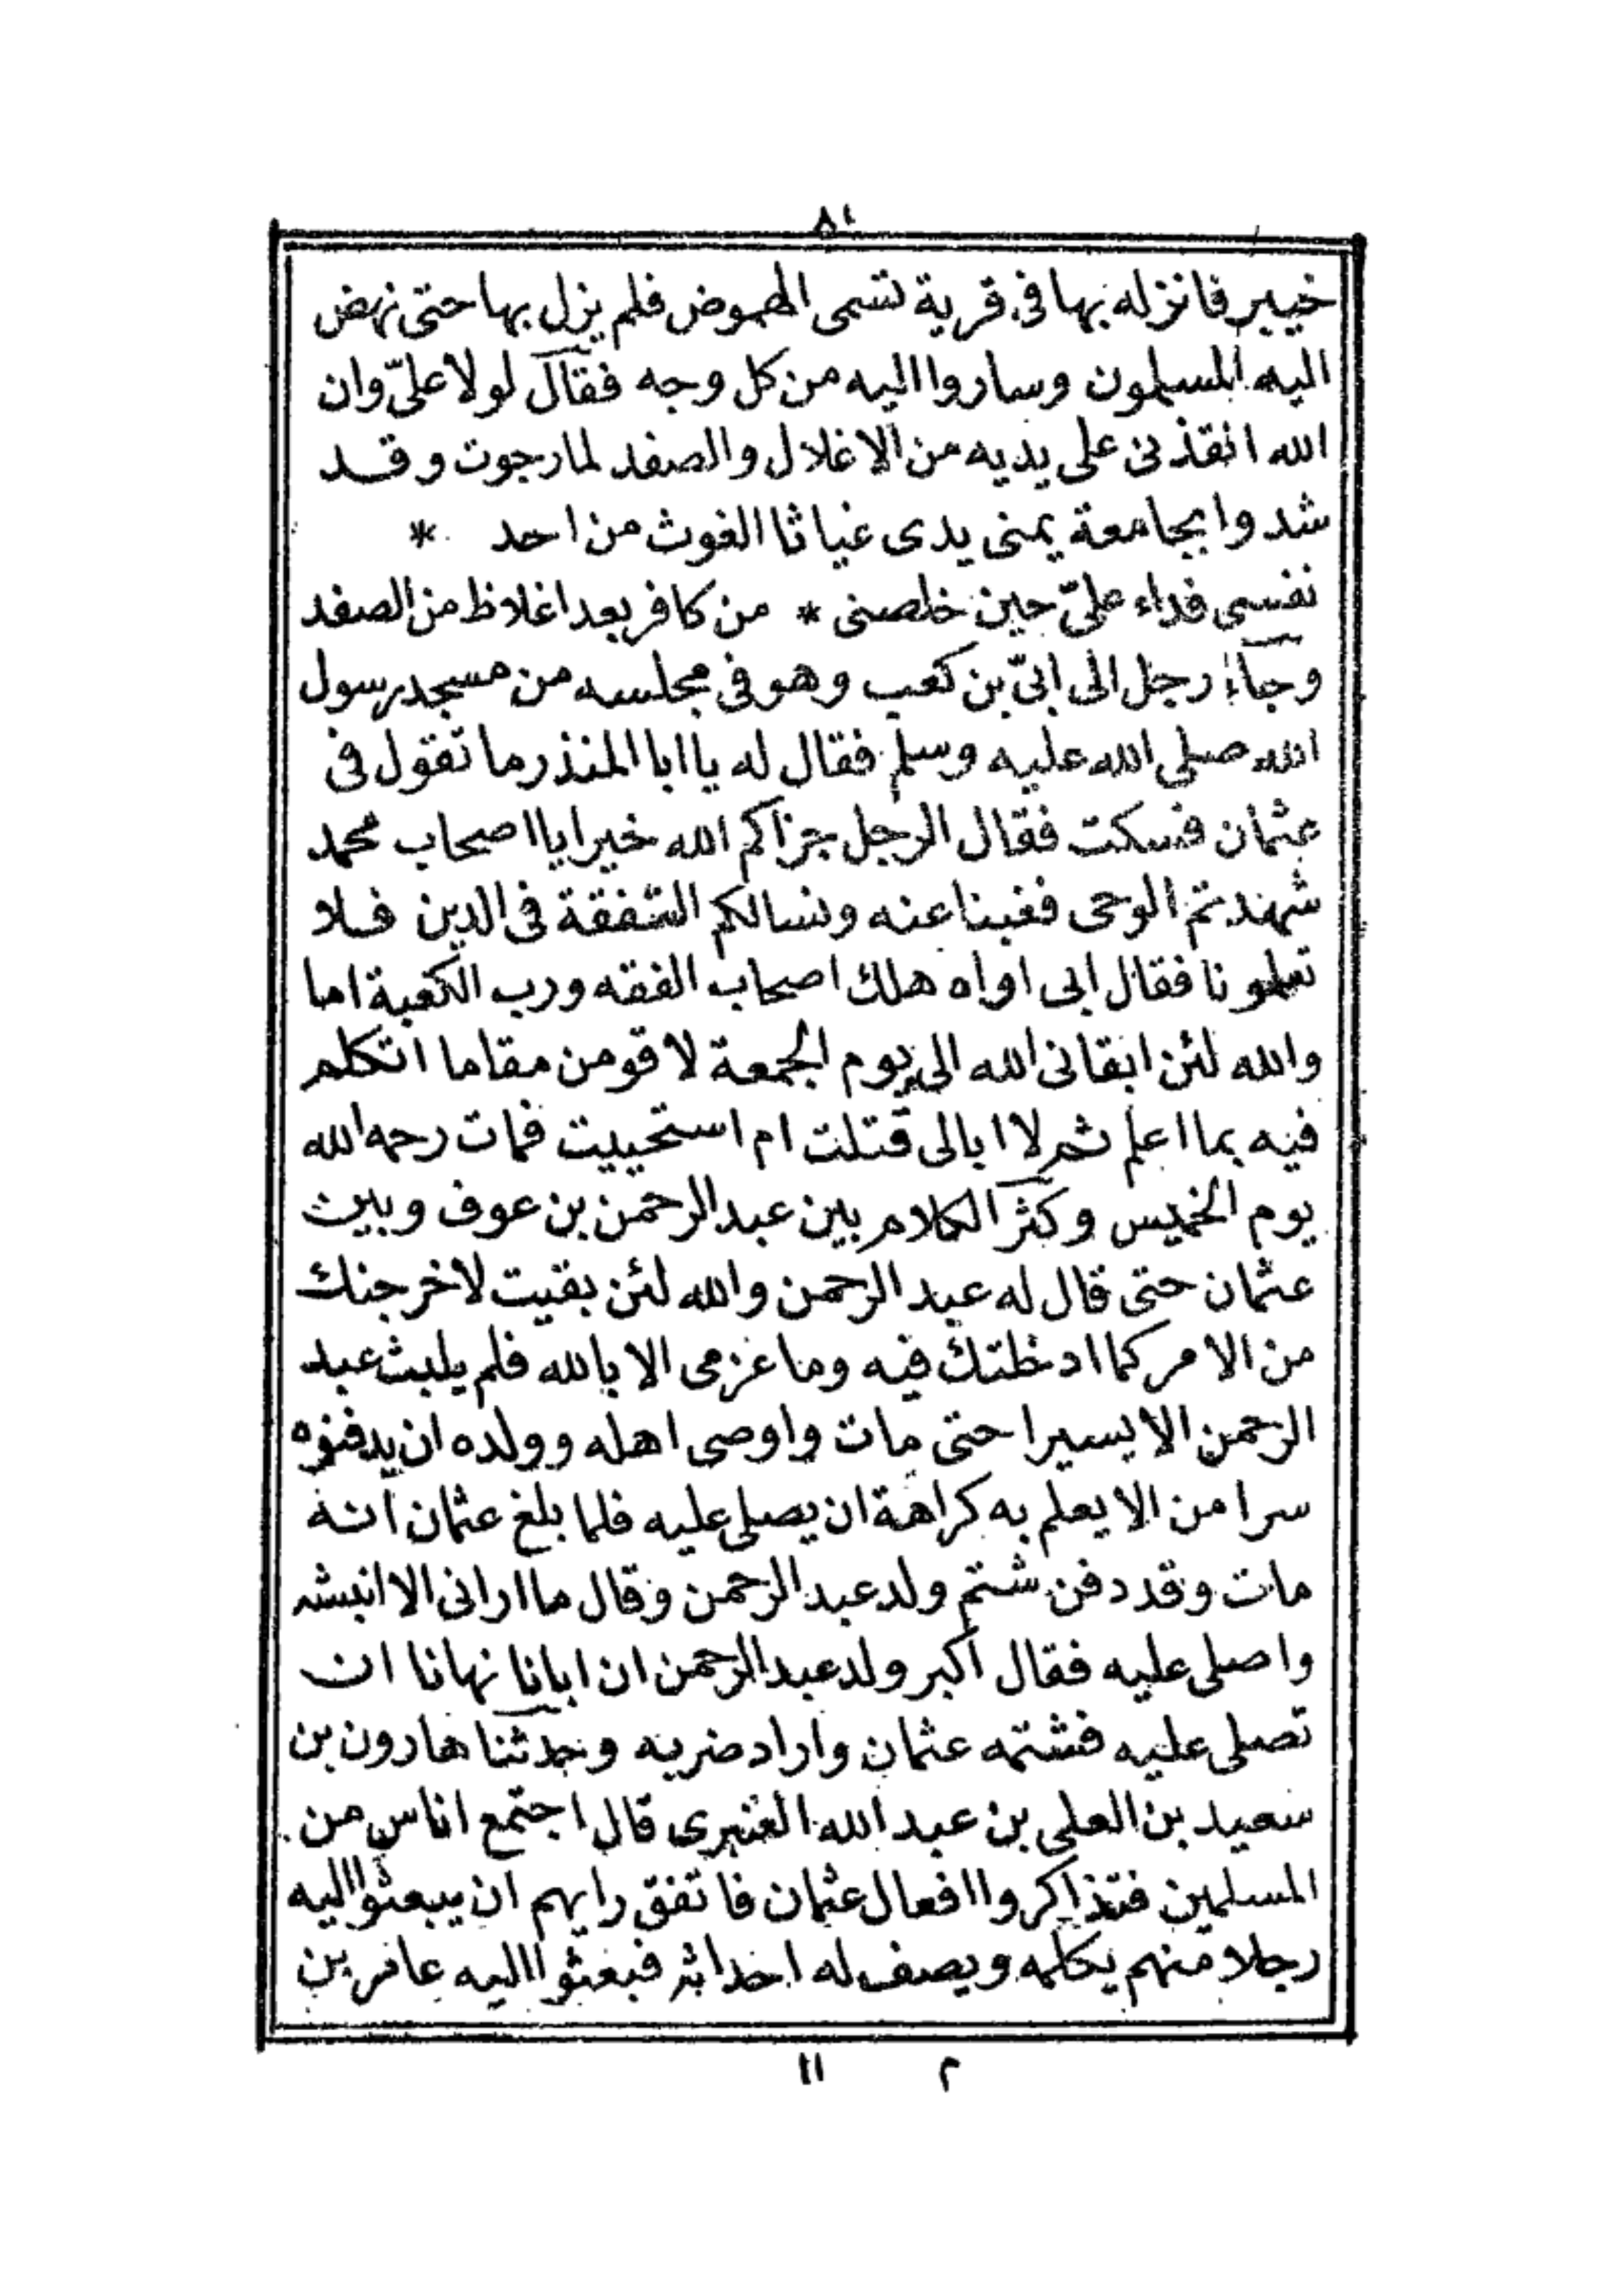 ٨١
خيبر فانزله بها فى قرية تسمى الطموض فلم يزل بها حتى نهض
اليه المسلمون وساروا اليه من كل وجه فقال لولا علىّ وان
الله انقذنى على يديه من الاغلال والصفد لما رجوت وقد
شدوا بجامعة يمنى يدى غياثا الغوث من احد *
نفسى فداء علىّ حين خلصنى * من كافر بعد اغلاظ من الصفد
وجاء رجل الى ابىّ بن كعب وهو فى مجلسه من مسجد رسول
الله صلى الله عليه وسلم فقال له يا ابا المنذر ما تقول فى
عثمان فسكت فقال الرجل جزاكم الله خيرا يا اصحاب محمد
شهدتم الوحى فغبنا عنه ونسالكم التفقة فى الدين فلا
تعلمونا فقال ابى اواه هلك اصحاب الفقه ورب الكعبة اما
والله لئن ابقانى الله الى يوم الجمعة لاقومن مقاما اتكلم
فيه بما اعلم ثم لا ابالى قتلت ام استحييت فمات رحمه الله
يوم الخميس وكثر الكلام بين عبد الرحمن بن عوف وبين
عثمان حتى قال له عبد الرحمن والله لئن بقيت لاخرجنك
من الامر كما ادخلتك فيه وما عزمى الا بالله فلم يلبث عبد
الرحمن الا يسيرا حتى مات واوصى اهله وولده ان يدفنوه
سرا من الا يعلم به كراهة ان يصلى عليه فلما بلغ عثمان انه
مات وقد دفن شتم ولد عبد الرحمن وقال ما ارانى الا انبشه
واصلى عليه فقال اكبر ولد عبد الرحمن ان ابانا نهانا ان
تصلى عليه فشتمه عثمان واراد ضربه وحدثنا هارون بن
سعيد بن العلى بن عبد الله العنبرى قال اجتمع اناس من
المسلمين فتذاكروا افعال عثمان فاتفق رايهم ان يبعثوا اليه
رجلا منهم يكلمه ويصف له احداثه فبعثوا اليه عامر بن
م ١١